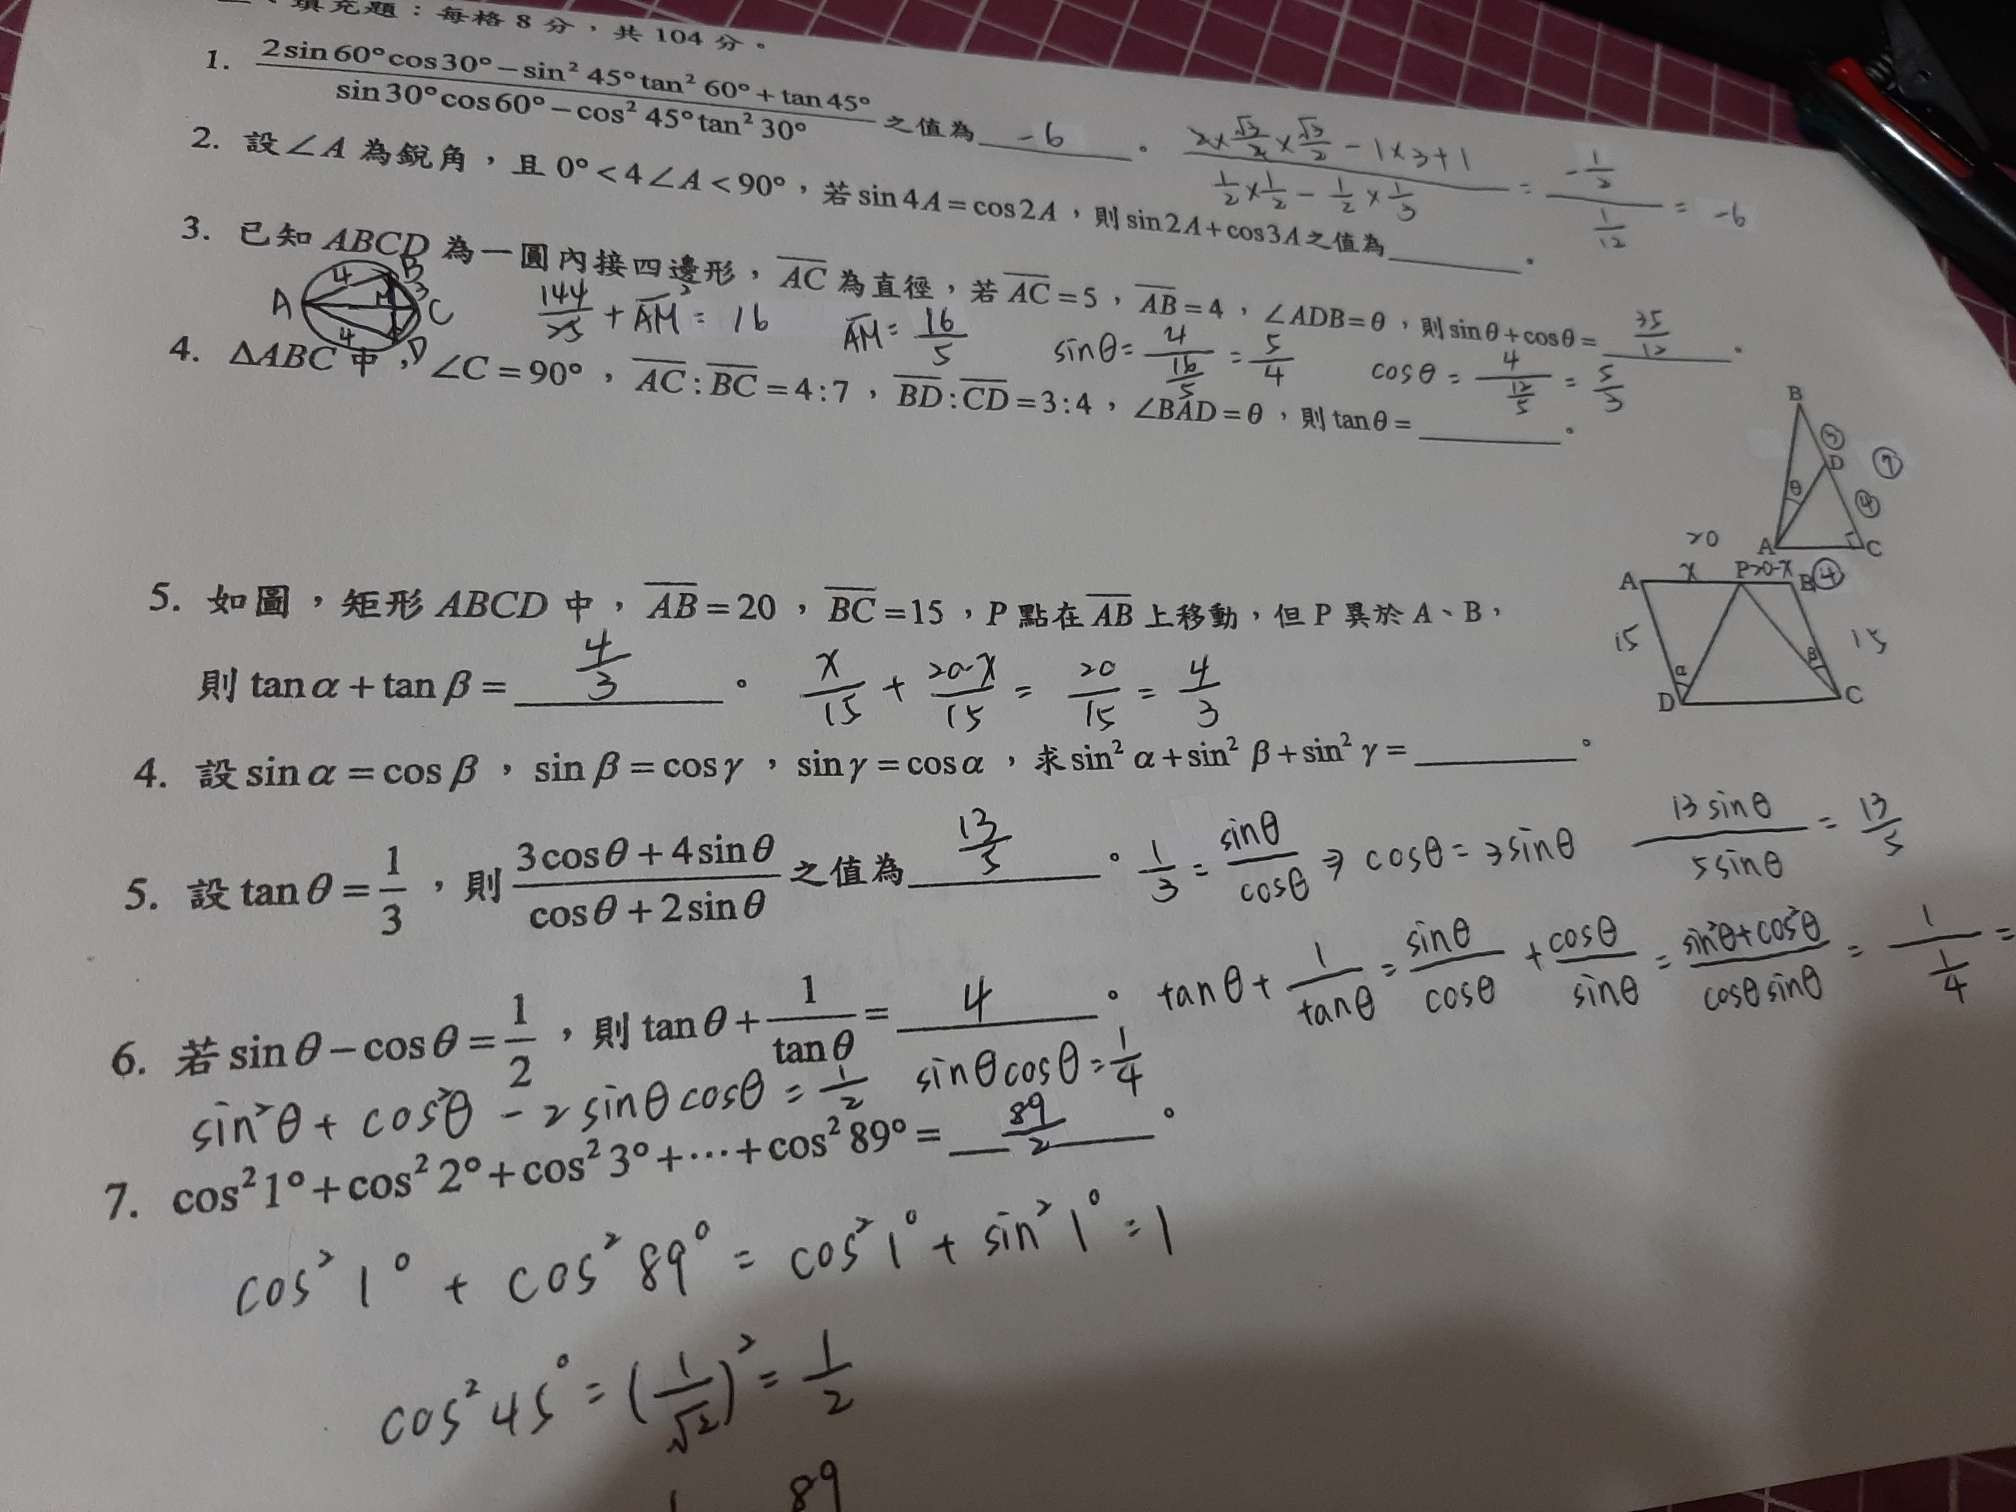 填充題：每格 8 分，共 104 分。
1. (2sin60°cos30°−sin²45°tan²60°+tan45°)/(sin30°cos60°−cos²45°tan²30°) 之值為 -6 。
(2×√3/2×√3/2 − 1×3+1)/(1/2×1/2 − 1/2×1/3) = (-1/2)/(1/12) = -6
2. 設∠A 為銳角，且 0°<4∠A<90°，若 sin4A=cos2A，則 sin2A+cos3A之值為 。
3. 已知 ABCD 為一圓內接四邊形，AC 為直徑，若 AC=5，AB=4，∠ADB=θ，則 sinθ+cosθ= 35/12 。
A B C D M 4 3 4
144/25 + AM² = 16 AM = 16/5 sinθ= 4/(16/5) = 5/4 cosθ = 4/(12/5) = 5/3
4. ΔABC 中，∠C=90°，AC:BC=4:7，BD:CD=3:4，∠BAD=θ，則 tanθ= 。
B ③ D ⑦ θ ④ A C ④
5. 如圖，矩形 ABCD 中，AB=20，BC=15，P 點在 AB 上移動，但 P 異於 A、B，
則 tanα+tanβ= 4/3 。 x/15 + (20-x)/15 = 20/15 = 4/3
20
A x P 20-x B
15 15
α β
D C
4. 設 sinα=cosβ，sinβ=cosγ，sinγ=cosα，求 sin²α+sin²β+sin²γ= 。
5. 設 tanθ=1/3，則 (3cosθ+4sinθ)/(cosθ+2sinθ) 之值為 13/5 。 1/3 = sinθ/cosθ ⇒ cosθ=3sinθ 13sinθ/5sinθ = 13/5
6. 若 sinθ−cosθ=1/2，則 tanθ+1/tanθ= 4 。 tanθ+ 1/tanθ = sinθ/cosθ + cosθ/sinθ = (sin²θ+cos²θ)/(cosθsinθ) = 1/(1/4) =
sin²θ + cos²θ - 2sinθcosθ = 1/2 sinθcosθ=1/4
7. cos²1°+cos²2°+cos²3°+⋯+cos²89°= 89/2 。
cos²1° + cos²89° = cos²1° + sin²1° = 1
cos²45° = (1/√2)² = 1/2
1 89